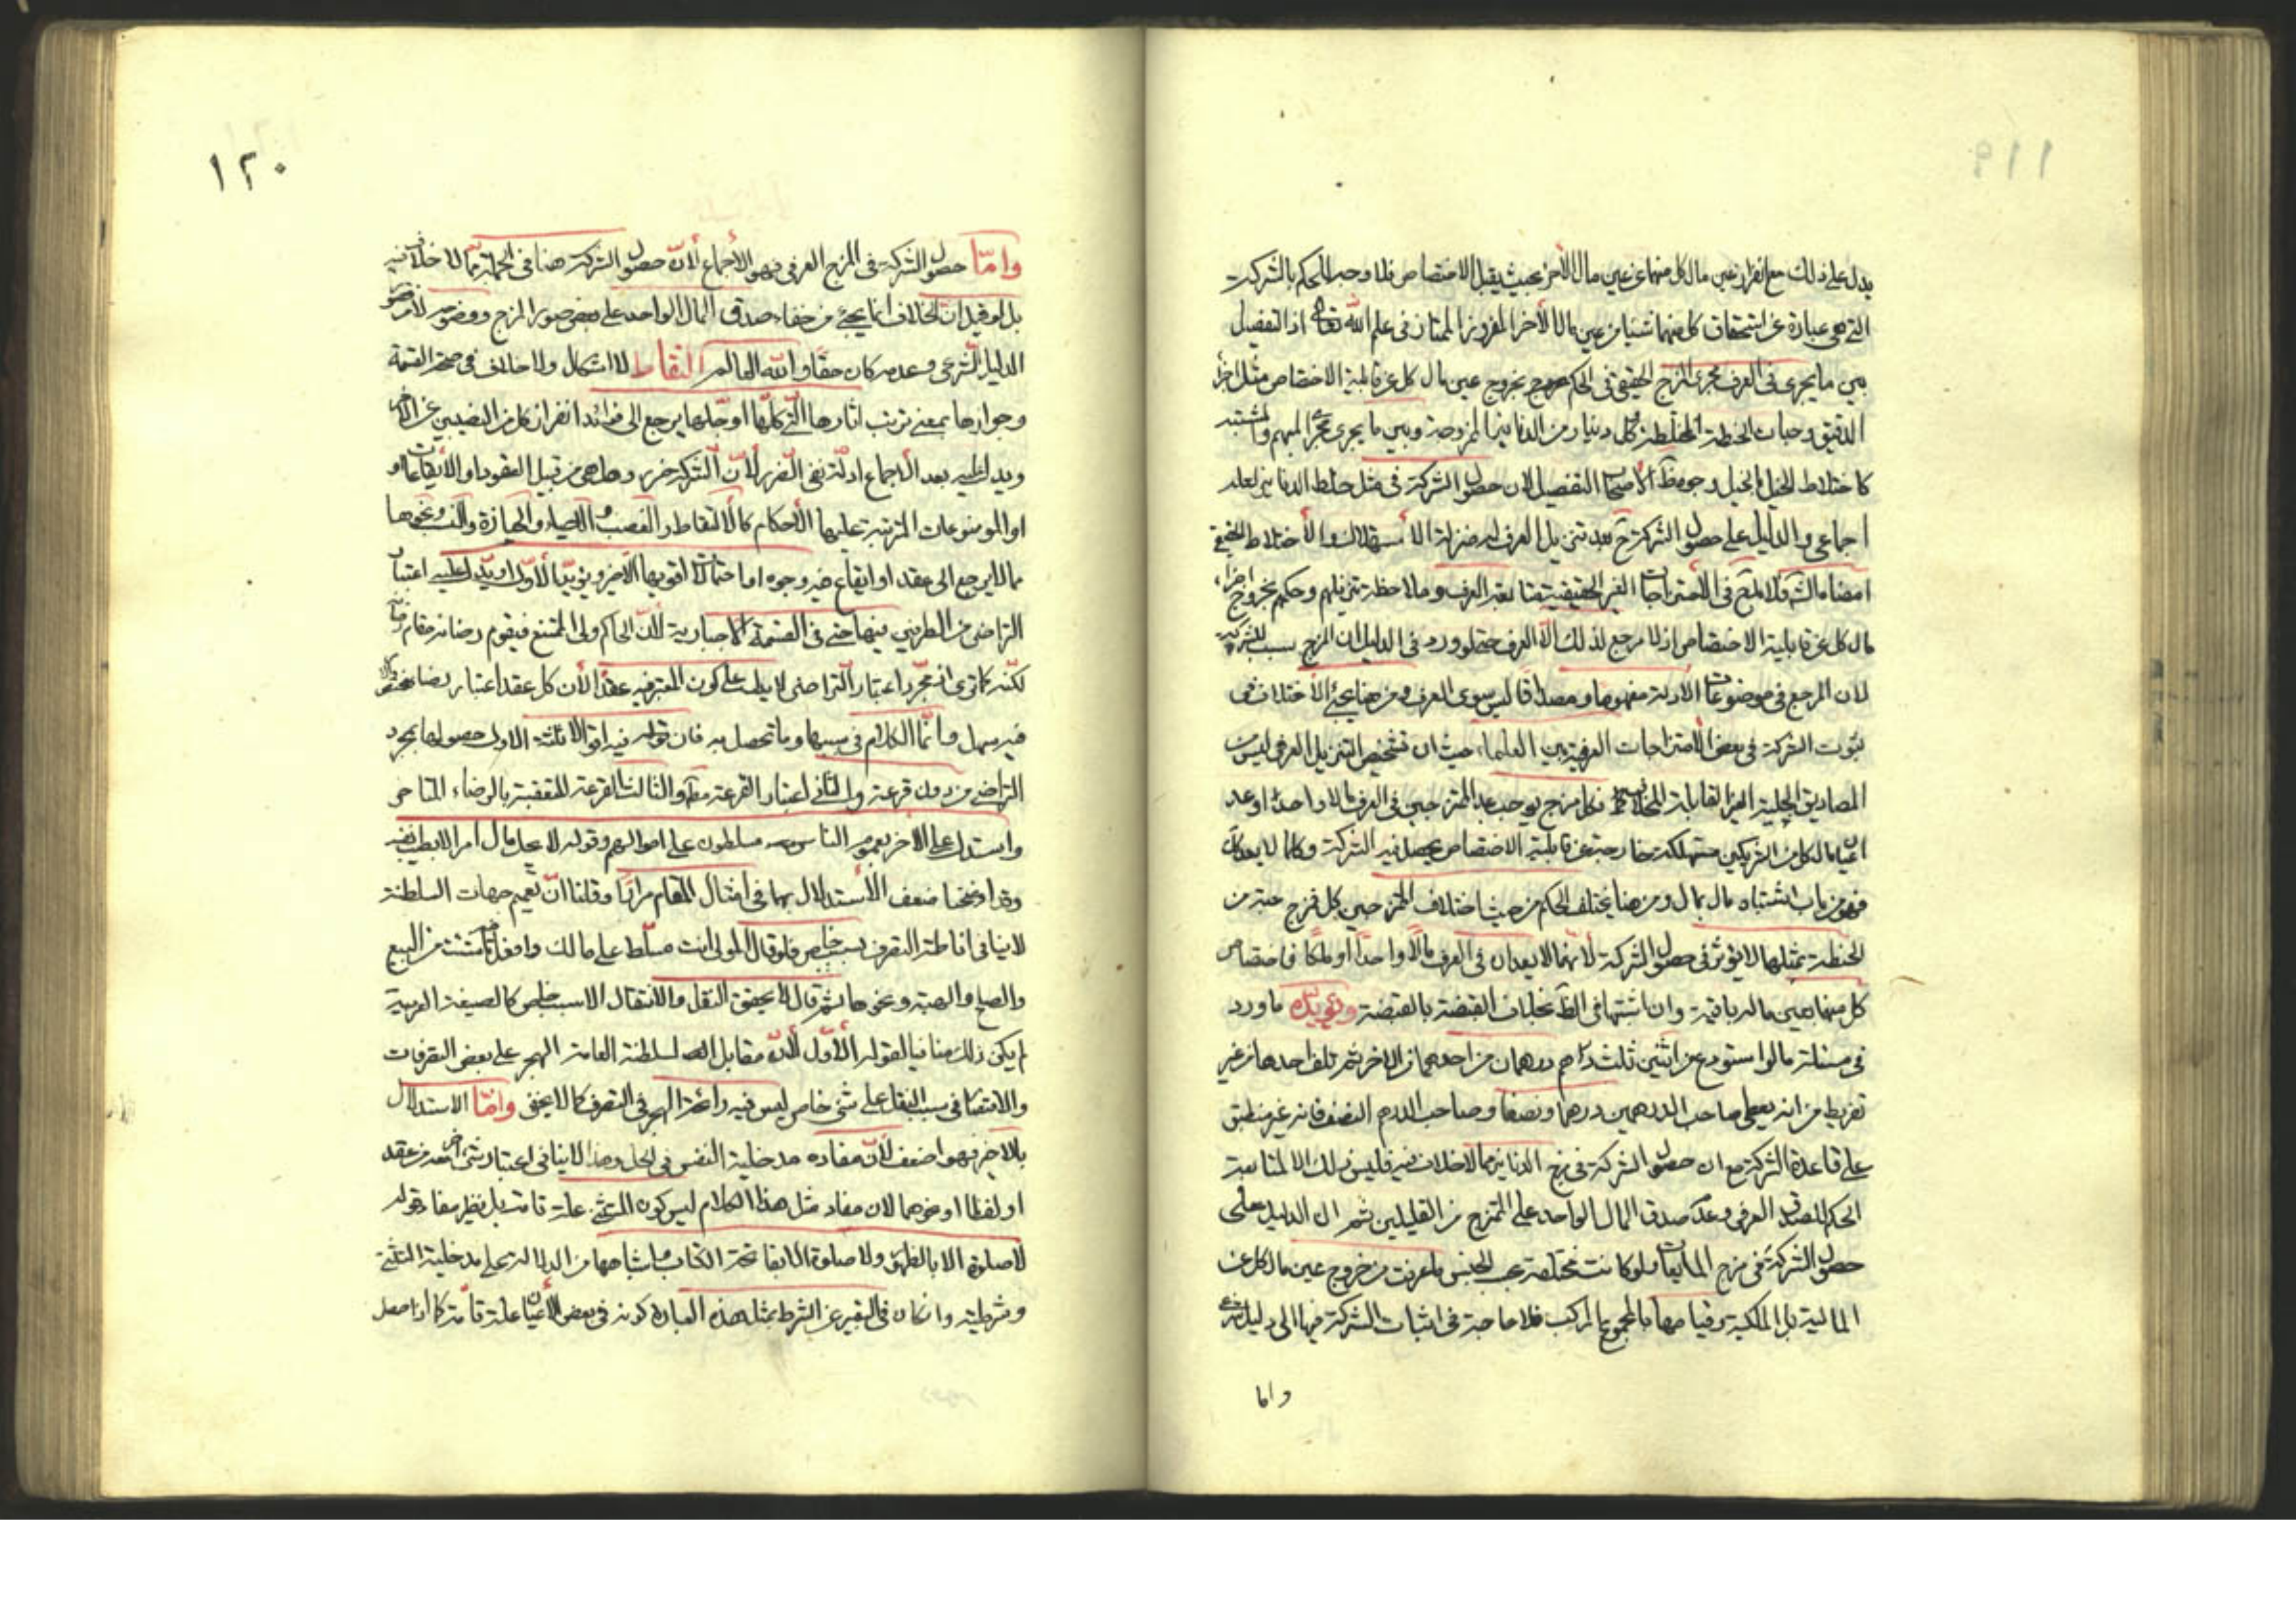 ١١٩
يدل على ذلك مع انفراز عين مال كل منهما عن عين مال الآخر بحيث يقبل الاختصاص فلا وجه للحكم بالشركت
التي هي عبارة عن استحقاق كل منهما شيئا من عين مال الآخر المفروز الممتاز في علم الله تعالى اذ التفصيل
بين ما يجرى فى العرف مجرى المزج الحقيقى فى الحكم بخروج عين مال كل عن قابلية الاختصاص مثل اجزاء
الدقيق وحبات الحنطة المختلطة وكل دينار من الدنانير الممزوجة وبين ما يجرى مجرى المبهم والمشتبه
كاختلاط الخيل بالخيل وجوه الاصحاب التفصيل لان حصول الشركة فى مثل خلط الدنانير لعله
اجماعى والدليل على حصول الشركة ح بعد تنزيل العرف له منزلة الاستهلاك والاختلاط الحقيقى
امضاء الشارع فى الامتزاجات الغير الحقيقية متابعة العرف وملاحظة تنزيلهم وحكمهم بخروج اجزاء
مال كل عن قابلية الاختصاص اذ لا مرجع لذلك الا العرف حتى لو ورد فى الدليل ان المزج سبب للشركة
لان المرجع فى موضوعات الادلة مفهوما ومصداقا ليس سوى العرف ومن هنا يجئ الاختلاف فى
ثبوت الشركة فى بعض الامتزاجات العرفية بين العلماء حيث ان تشخيص التنزيل العرفى ليس من
المصاديق الجلية الغير القابلة للخلاف فكل مزج يوجب عد الممتزجين فى العرف مالا واحدا او عد
اعيان مال كل من الشريكين مستهلكة خارجة عن قابلية الاختصاص يحصل فيه الشركة وكلما لا يعد كك
فهو من باب اشتباه مال بمال ومن هنا يختلف الحكم من حيث اختلاف الممتزجين كل فمزج حبة من
الحنطة بمثلها لا يؤثر فى حصول الشركة لانهما لا يعدان فى العرف مالا واحدا او ملكا فاختصاص
كل منهما بعين ماله باقية وان اشتبها فى الظ بخلاف القبضة بالقبضة ويؤيده ما ورد
فى مسئلة ما لو استودع عن اثنين ثلث دراهم درهمان من احدهما والآخر ثم تلف احدها من غير
تفريط من انه يعطى صاحب الدرهمين درهما ونصفا وصاحب الدرهم النصف فانه غير منطبق
على قاعدة الشركة مع ان حصول الشركة فى مزج الدنانير مما لا خلاف فيه فليس ذلك الا لمتابعة
الحكم للصدق العرفى وعدم صدق المال الواحد على الممتزج من القليلين ثم ان الدليل على
حصول الشركة فى مزج المايعات ولو كانت مختلفة بحسب الجنس ما عرفت من خروج عين مال كل عن
المالية بل الملكية وقيامها بالمجموع المركب فلا حاجة فى اثبات الشركة فيها الى دليل شرعى
واما
١٢٠
وامّا حصول الشركة فى المزج العرفى فهو الاجماع لأنّ حصول الشركة هنا فى الجملة ممّا لا خلاف فيه
بل لو قيل ان الخلاف انما يجئ من خفاء صدق المال الواحد على بعض صور المزج ووضوحه لا من
الدليل الشرعى وعدمه كان حقا والله العالم التقاط لا اشكال ولا خلاف فى صحة القسمة
وجوازها بمعنى ترتب اثارها التى كلّها او جلّها يرجع الى فوائد انفراز كل من النصيبين عن الآخر
ويدل عليه بعد الاجماع ادلّة نفى الضرر لأنّ الشركة ضرر وهل هى من قبيل العقود او الايقاعات او
او الموضوعات المرتبة عليها الأحكام كالالتقاط والغصب والاحياء والحيازة والنسب ونحوها
مما لا يرجع الى عقد او ايقاع فيه وجوه او احتمالات اقويها الاخير ويؤيّد الأول او يدل عليه اعتبار
التراضى من الطرفين فيها حتى فى القسمة الاجبارية لأنّ الحاكم ولى الممتنع فيقوم رضائه مقام رضاه
لكنّه كما ترى اذ مجرّد اعتبار التراضى لا يدل على كون المعتبر فيه عقدا لأن كل عقد اعتبار رضا
فيه سهل وانّما الكلام فى سببها وما تحصل به فان فيه اقوالا ثلثة الاول حصولها بمجرد
التراضى من دون قرعة والثانى اعتبار القرعة مط والثالث القرعة المتعقبة بالرضاء المتاخر
واستدل على الاخر بعموم الناس مسلطون على اموالهم وقوله لا يحل مال امرء الا بطيب نفسه
وقد اوضحنا ضعف الاستدلال بهما فى امثال المقام مرارا وقلنا انّ تعميم جهات السلطنة
لا ينافى اناطة التصرف بسبب خاص فلو قال المولى انت مسلّط على مالك وافعل ما شئت من البيع
والصلح والهبة ونحوها ثم قال لا يتحقق النقل والانتقال الا بسبب خاص كالصيغة العربية
لم يكن ذلك منافيا لقوله الأوّل لأنّ مقابل السلطنة العامة الحجر على بعض التصرفات
والاقتصار فى سبب النقل على شئ خاص ليس فيه رائحة الحجر فى التصرف كما لا يخفى وامّا الاستدلال
بالاخير فهو اضعف لأنّ مفاده مدخلية النفس فى الحل وهذا لا ينافى اعتبار شئ آخر معه من عقد
او لفظ او نحوهما لان مفاد مثل هذا الكلام ليس كون المستثنى علة تامة بل نظير مفاد قوله
لا صلوة الا بالطهور ولا صلوة الا بفاتحة الكتاب واشباهها من الدلالة على مدخلية المستثنى
وشرطيته وان كان فى التعبير عن الشرط بمثل هذه العبارة كونه فى بعض الاحيان علة تامة كما اذا حصل